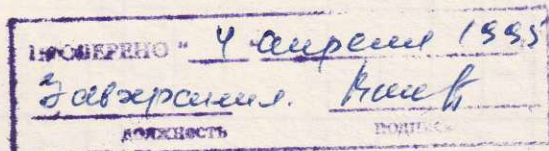 ПРОВЕРЕНО " 4 апреля 1995
Завхранил.
ДОЛЖНОСТЬ ПОДПИСЬ